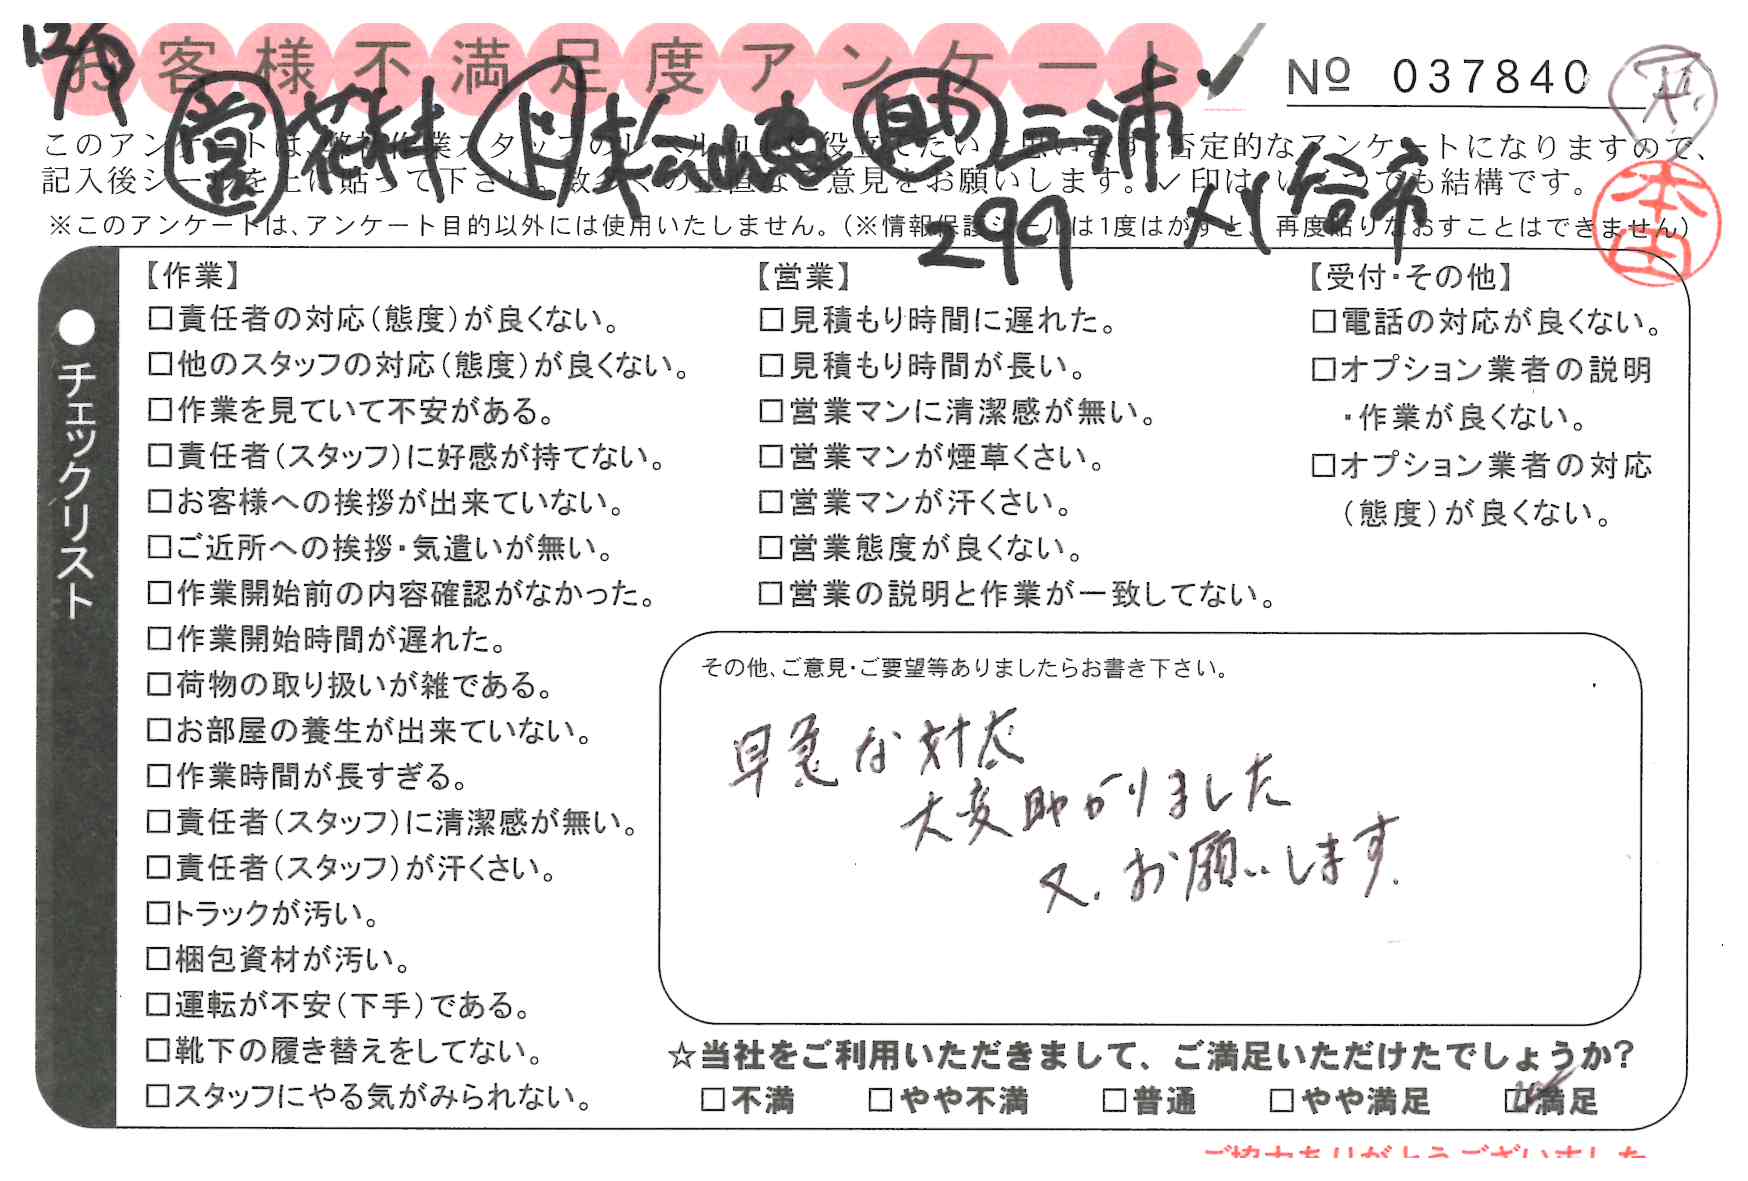 12/9
お客様不満足度アンケート
✓
Nº 037840
営 花村 ド 松山恵 助 三浦
299 刈谷市
本田
このアンケートは、弊社作業スタッフのレベル向上に役立てたいと思います。否定的なアンケートになりますので、
記入後シールを上に貼って下さい。数多くの正直なご意見をお願いします。✓印は、いくつでも結構です。
※このアンケートは、アンケート目的以外には使用いたしません。（※情報保護シールは1度はがすと、再度貼りなおすことはできません）
●チェックリスト
【作業】
□責任者の対応（態度）が良くない。
□他のスタッフの対応（態度）が良くない。
□作業を見ていて不安がある。
□責任者（スタッフ）に好感が持てない。
□お客様への挨拶が出来ていない。
□ご近所への挨拶・気遣いが無い。
□作業開始前の内容確認がなかった。
□作業開始時間が遅れた。
□荷物の取り扱いが雑である。
□お部屋の養生が出来ていない。
□作業時間が長すぎる。
□責任者（スタッフ）に清潔感が無い。
□責任者（スタッフ）が汗くさい。
□トラックが汚い。
□梱包資材が汚い。
□運転が不安（下手）である。
□靴下の履き替えをしてない。
□スタッフにやる気がみられない。
【営業】
□見積もり時間に遅れた。
□見積もり時間が長い。
□営業マンに清潔感が無い。
□営業マンが煙草くさい。
□営業マンが汗くさい。
□営業態度が良くない。
□営業の説明と作業が一致してない。
【受付・その他】
□電話の対応が良くない。
□オプション業者の説明
・作業が良くない。
□オプション業者の対応
（態度）が良くない。
その他、ご意見・ご要望等ありましたらお書き下さい。
早急な対応
大変助かりました
又、お願いします。
☆当社をご利用いただきまして、ご満足いただけたでしょうか?
□不満 □やや不満 □普通 □やや満足 ☑満足
ご協力ありがとうございました